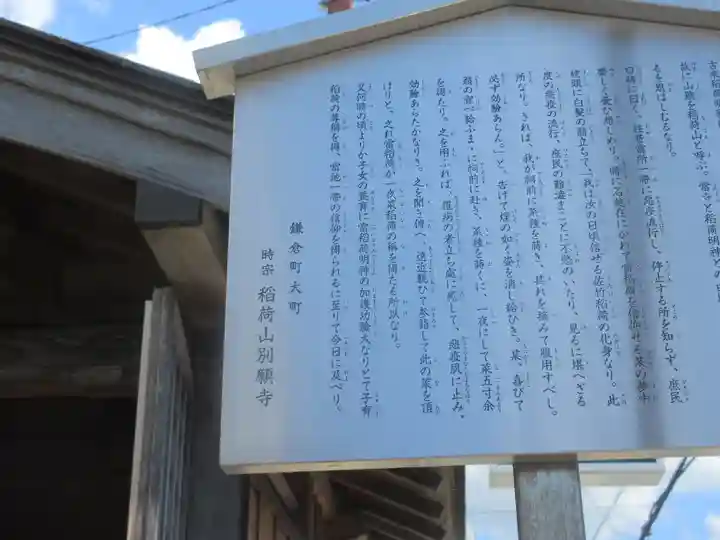 故に山號を稲荷山と呼ぶ。當寺と稲荷明神との
るを思ばしむるなり。
口碑に曰く、往昔當所一帯に惡疫流行し、停止する所を知らず、庶民
枕頭に白髪の翁立ちて、我は汝の日頃信せる佐竹稲荷の化身なり。此
度の惡疫の流行、庶民の難澁まことに不愍のいたり、見るに堪へざる
所なり。されば、我が祠前に菜種を蒔き、其れを摘みて服用すべし。
必ず効驗あらん。」と、告げて煙の如く姿を消し給ひき。某、喜びて
頭の宣べ給ふまゝに祠前に赴き、菜種を蒔くに、一夜にして菜五寸余
を得たり。之を用ふれば、罹病の者立ち處に癒して、惡疫夙に止み、
効驗あらたかなりき。之を聞き傳へ、遠近競ひて參詣して此の菜を頂
けりと。之れ當稲荷が一夜菜稲荷の稱を得たる所以なり。
又何時の頃よりか子女の養育に當稲荷明神の加護功驗大なりとて子育
稲荷の尊稱を得、當地一帯の信仰を得られるに至りて今日に及べり。
鎌倉町大町
時宗 稲荷山別願寺